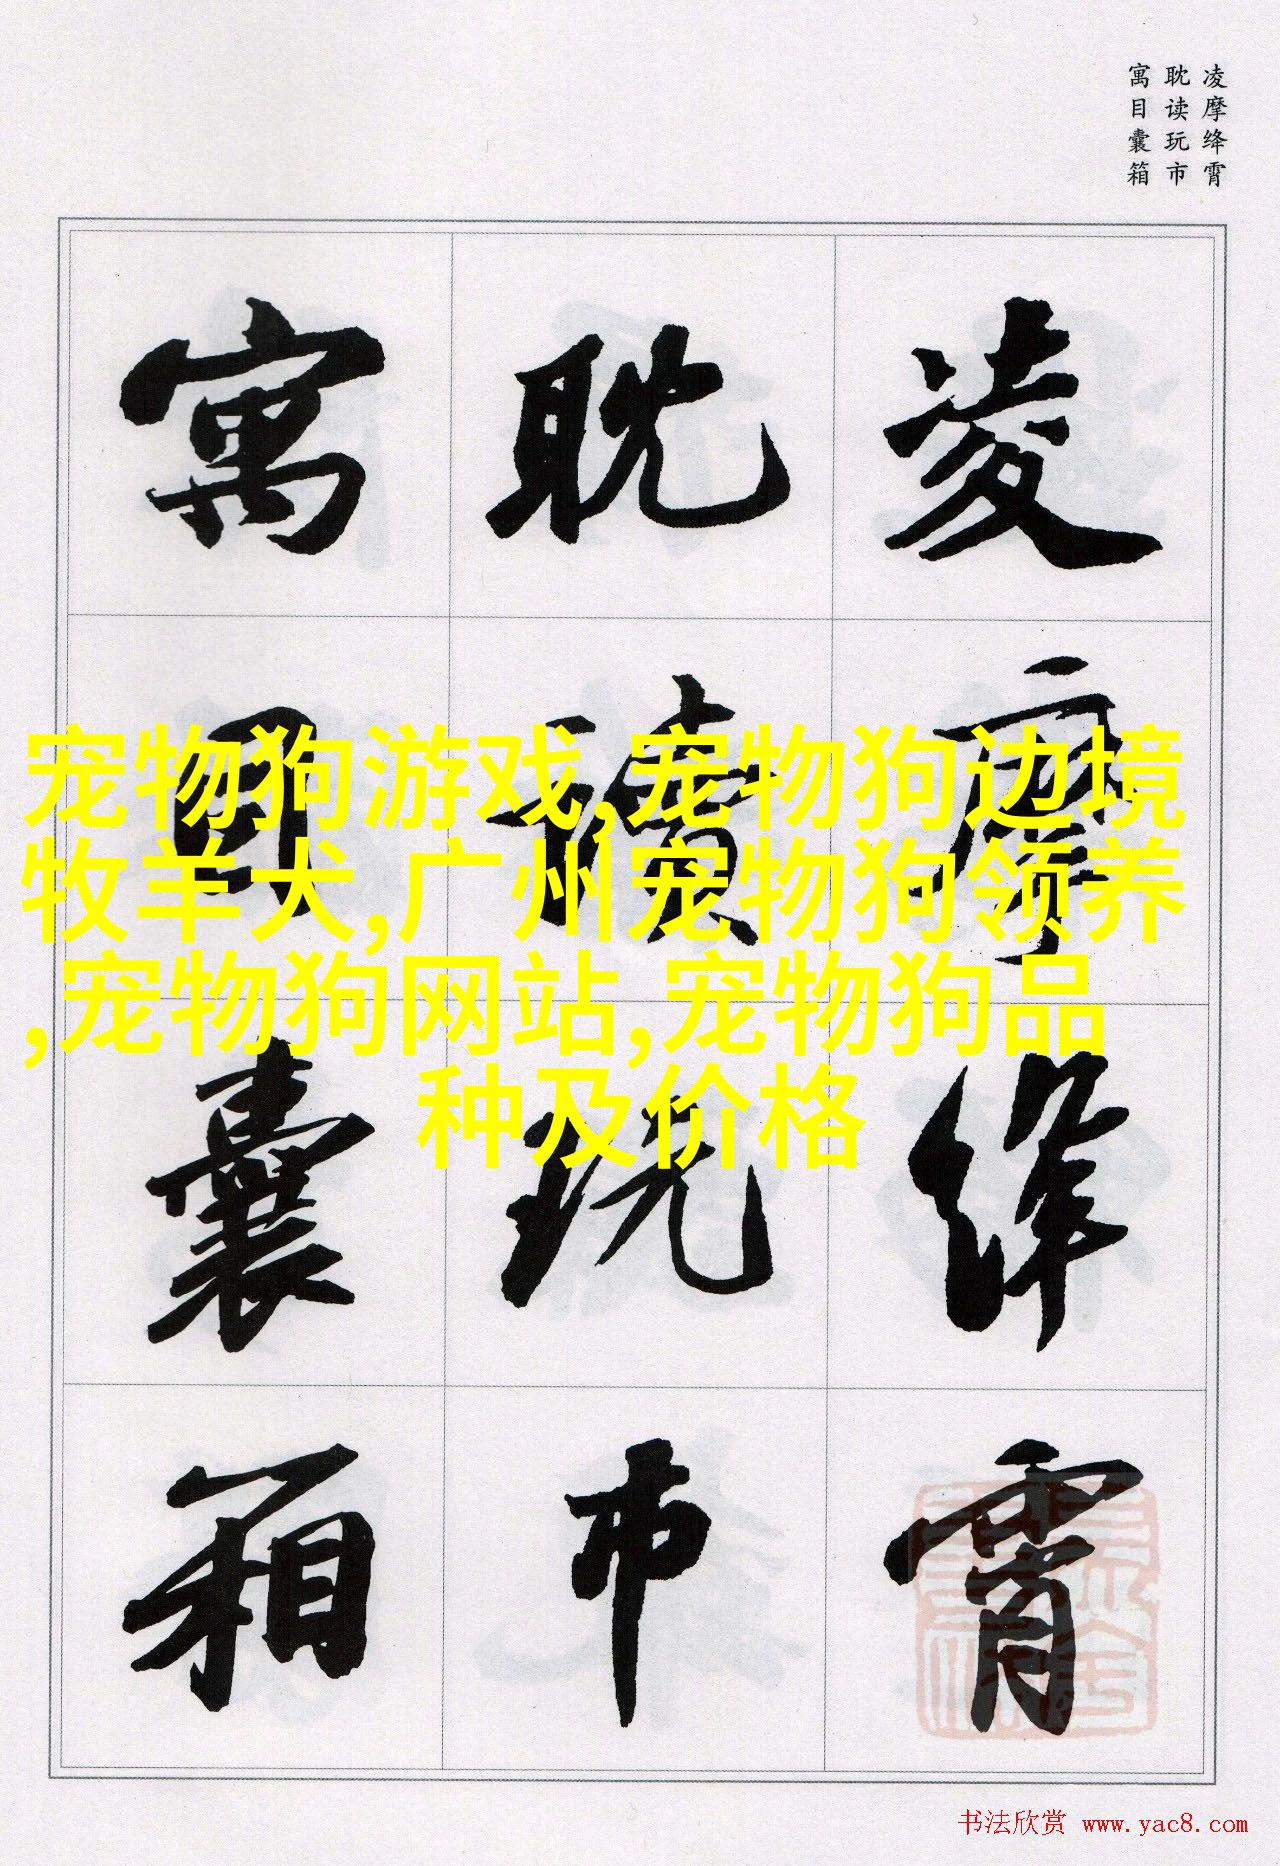 凌摩绛霄
耽读玩市
寓目囊箱
凌摩绛霄
耽讀玩市
寓目囊箱
宠物狗游戏,宠物狗边境
牧羊犬,广州宠物狗领养
,宠物狗网站,宠物狗品
种及价格
书法欣赏 www.yac8.com